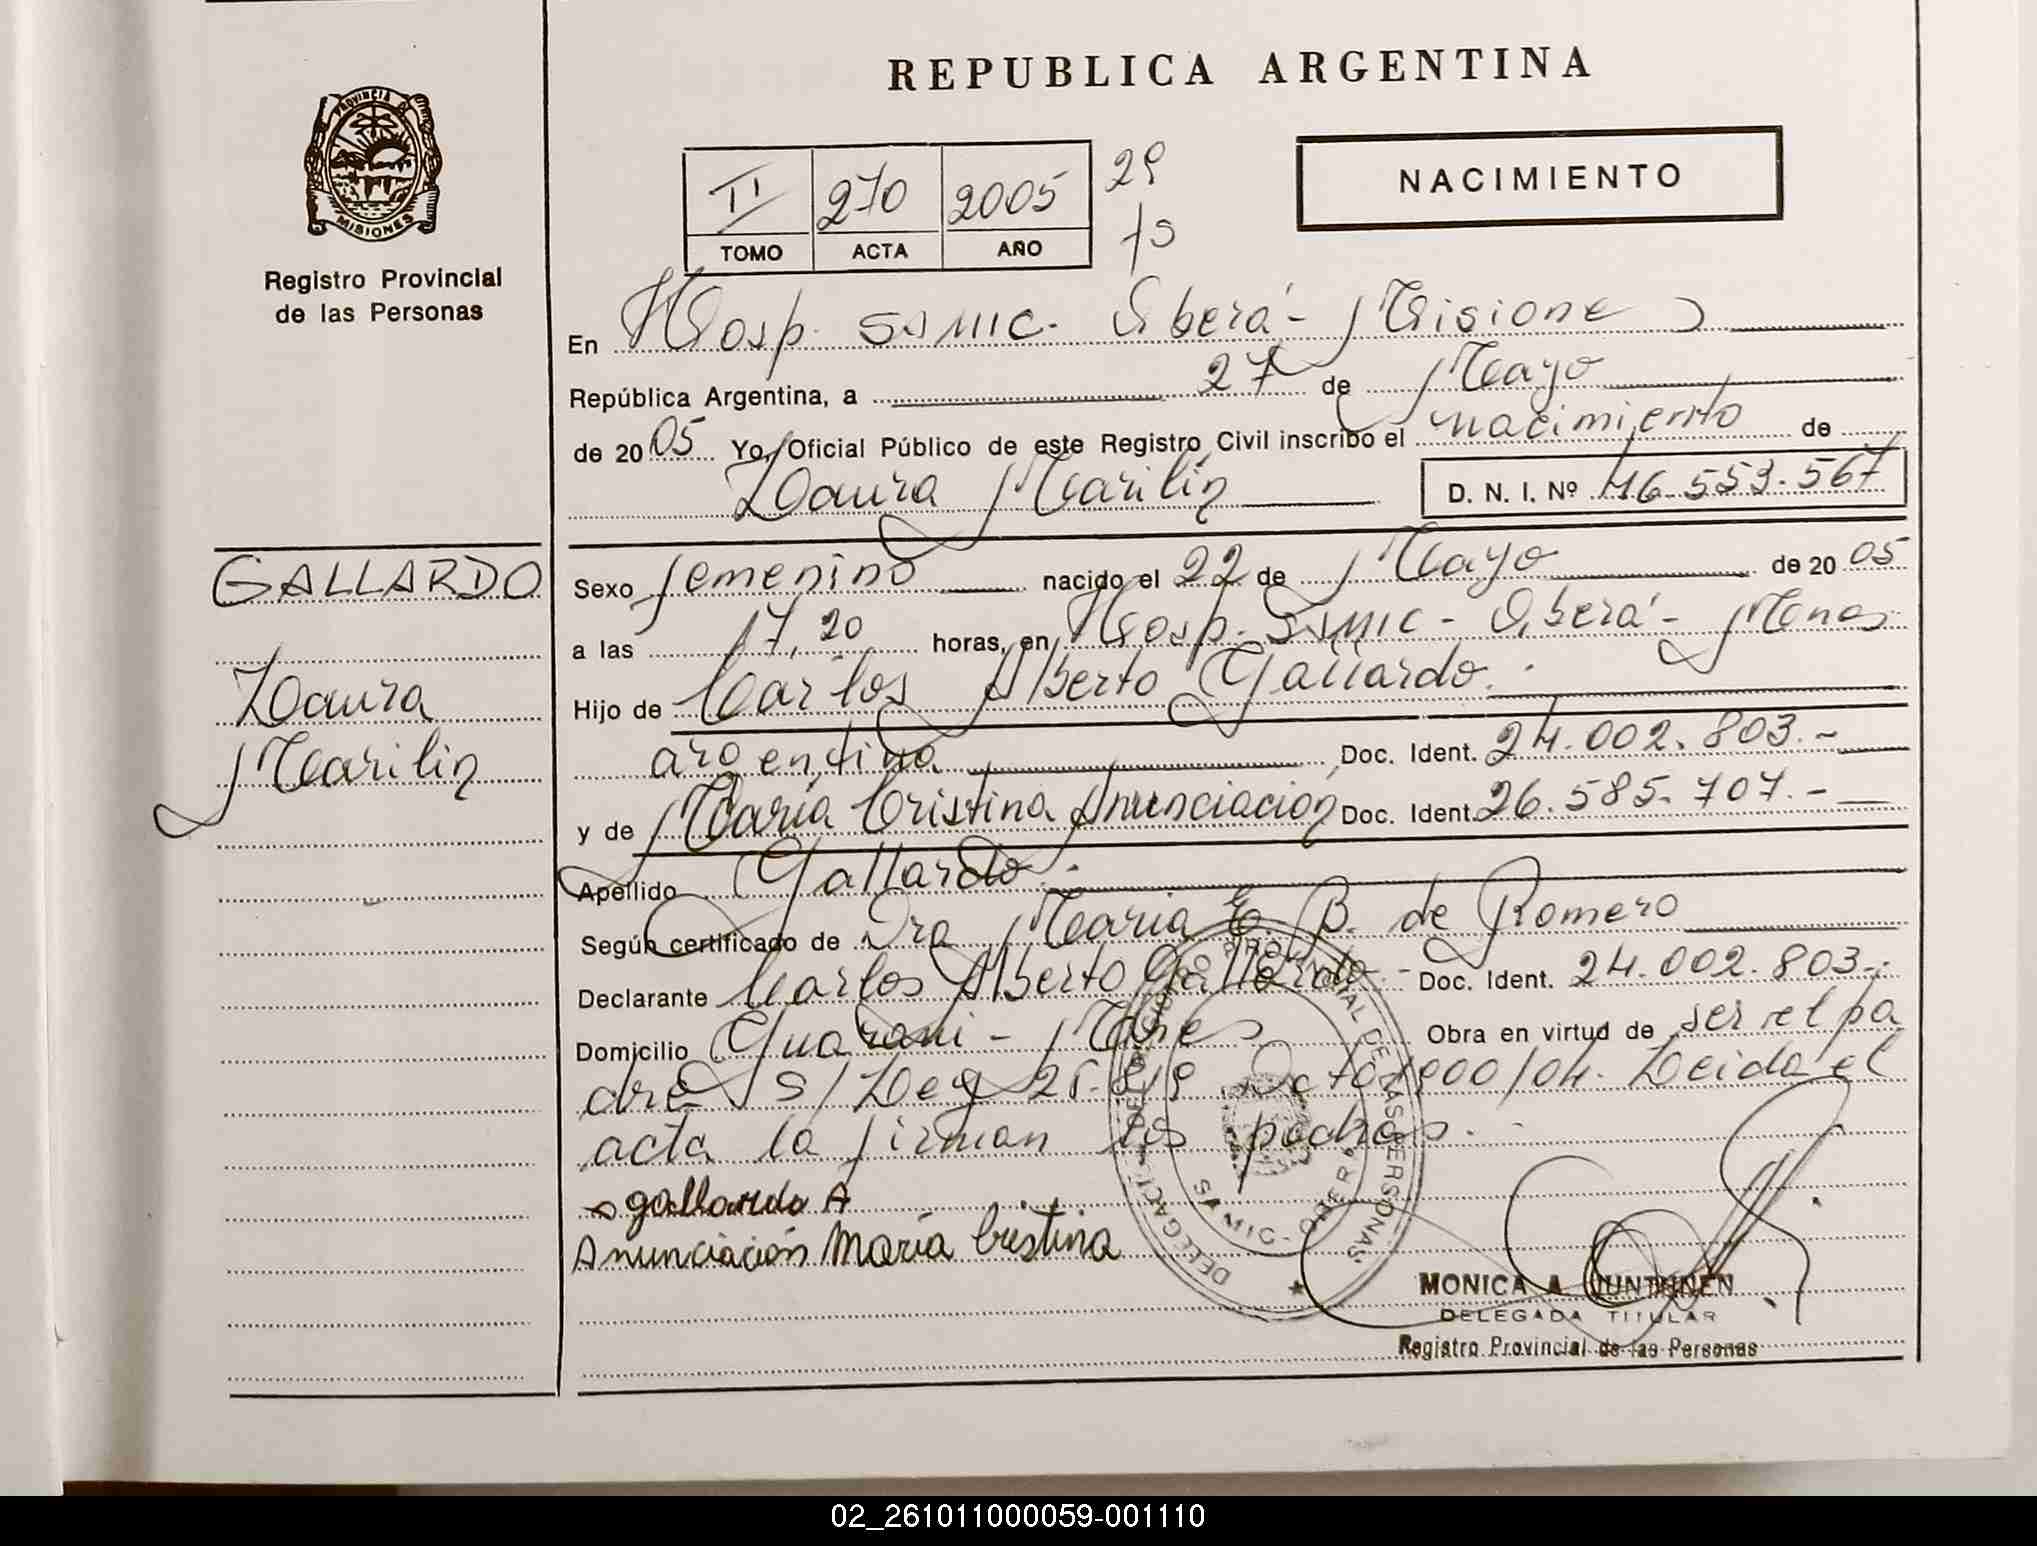 REPUBLICA ARGENTINA
PROVINCIA DE
MISIONES
Registro Provincial
de las Personas
II 270 2005 2º
TOMO ACTA AÑO
NACIMIENTO
En Hosp. SAMIC. Oberá - Misiones
República Argentina, a 27 de Mayo
de 2005 Yo, Oficial Público de este Registro Civil inscribo el nacimiento de
Laura Marilin D. N. I. Nº 46.553.567
GALLARDO
Laura
Marilin
Sexo femenino nacido el 22 de Mayo de 2005
a las 17,20 horas, en Hosp. SAMIC - Oberá - Mnes
Hijo de Carlos Alberto Gallardo.
argentina Doc. Ident. 24.002.803.-
y de María Cristina Anunciación Doc. Ident. 26.585.707.-
Apellido Gallardo.
Según certificado de Dra María E. B. de Romero
Declarante Carlos Alberto Gallardo - Doc. Ident. 24.002.803.-
Domicilio Guarani - Mnes Obra en virtud de ser el pa
dre s/Ley 25.819 1900/04. Leida el
acta la firman los padres.
gallardo A
Anunciación María Cristina
MONICA A. JUNTUNEN
DELEGADA TITULAR
Registro Provincial de las Personas
02_261011000059-001110